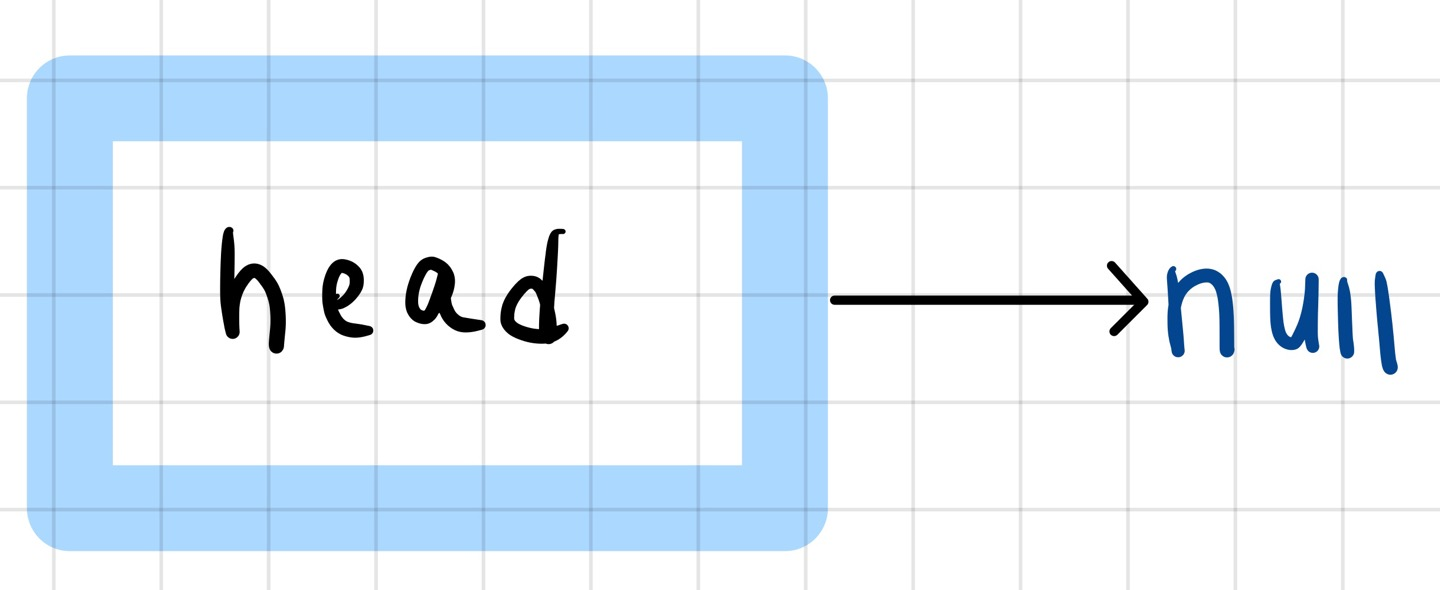 head null